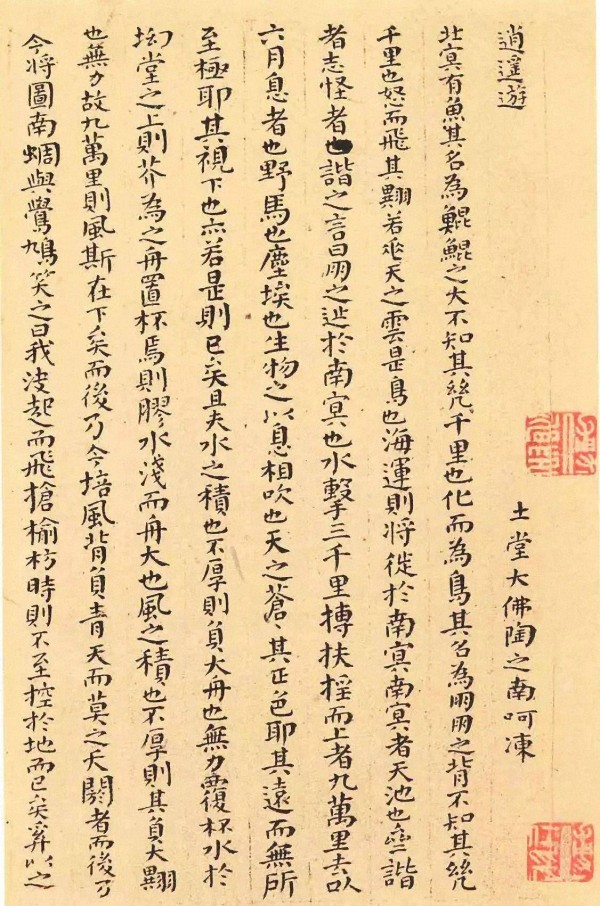 逍遥遊
土堂大佛陶之南呵凍
北冥有魚其名為鯤鯤之大不知其幾千里也化而為鳥其名為朋朋之背不知其幾
千里也怒而飛其翼若垂天之雲是鳥也海運則將徙於南冥南冥者天池也齊諧
者志怪者也諧之言曰朋之徙於南冥也水擊三千里摶扶摇而上者九萬里去以
六月息者也野馬也塵埃也生物之以息相吹也天之蒼〻其正色耶其遠而無所
至極耶其視下也亦若是則已矣且夫水之積也不厚則負大舟也無力覆杯水於
坳堂之上則芥為之舟置杯焉則膠水淺而舟大也風之積也不厚則其負大翼
也無力故九萬里則風斯在下矣而後乃今培風背負青天而莫之夭閼者而後乃
今將圖南蜩與鷽鳩笑之曰我決起而飛搶榆枋時則不至控於地而已矣奚以之